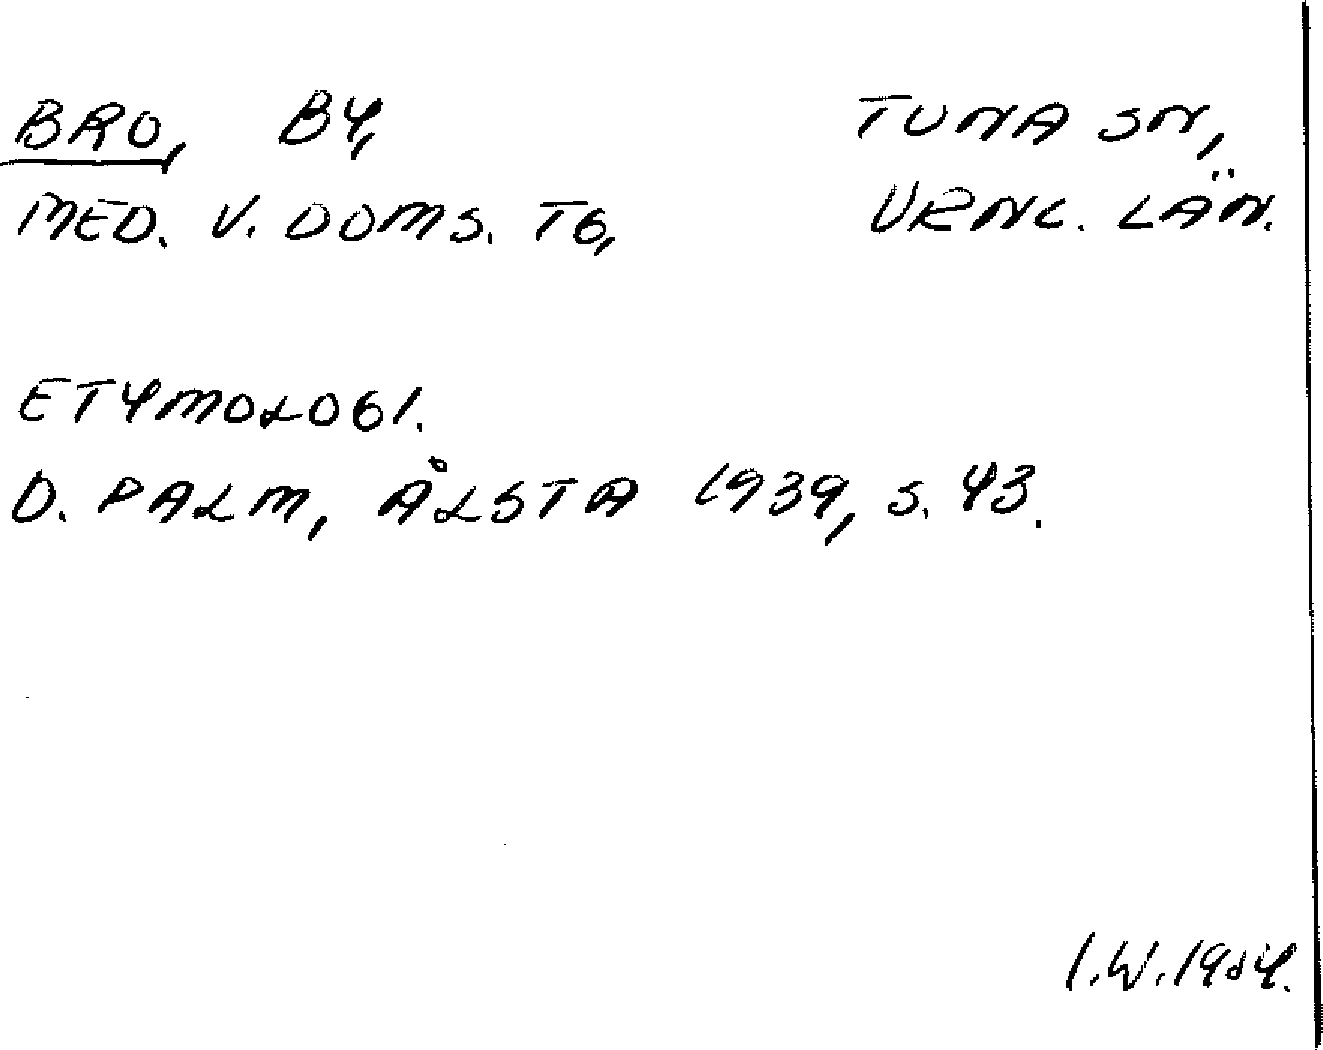 BRO, BY, TUNA SN,
MED. V. DOMS. TG, VRNL. LÄN.
ETYMOLOGI.
D. PALM, ÅLSTA 1939, S. 43.
I.W.